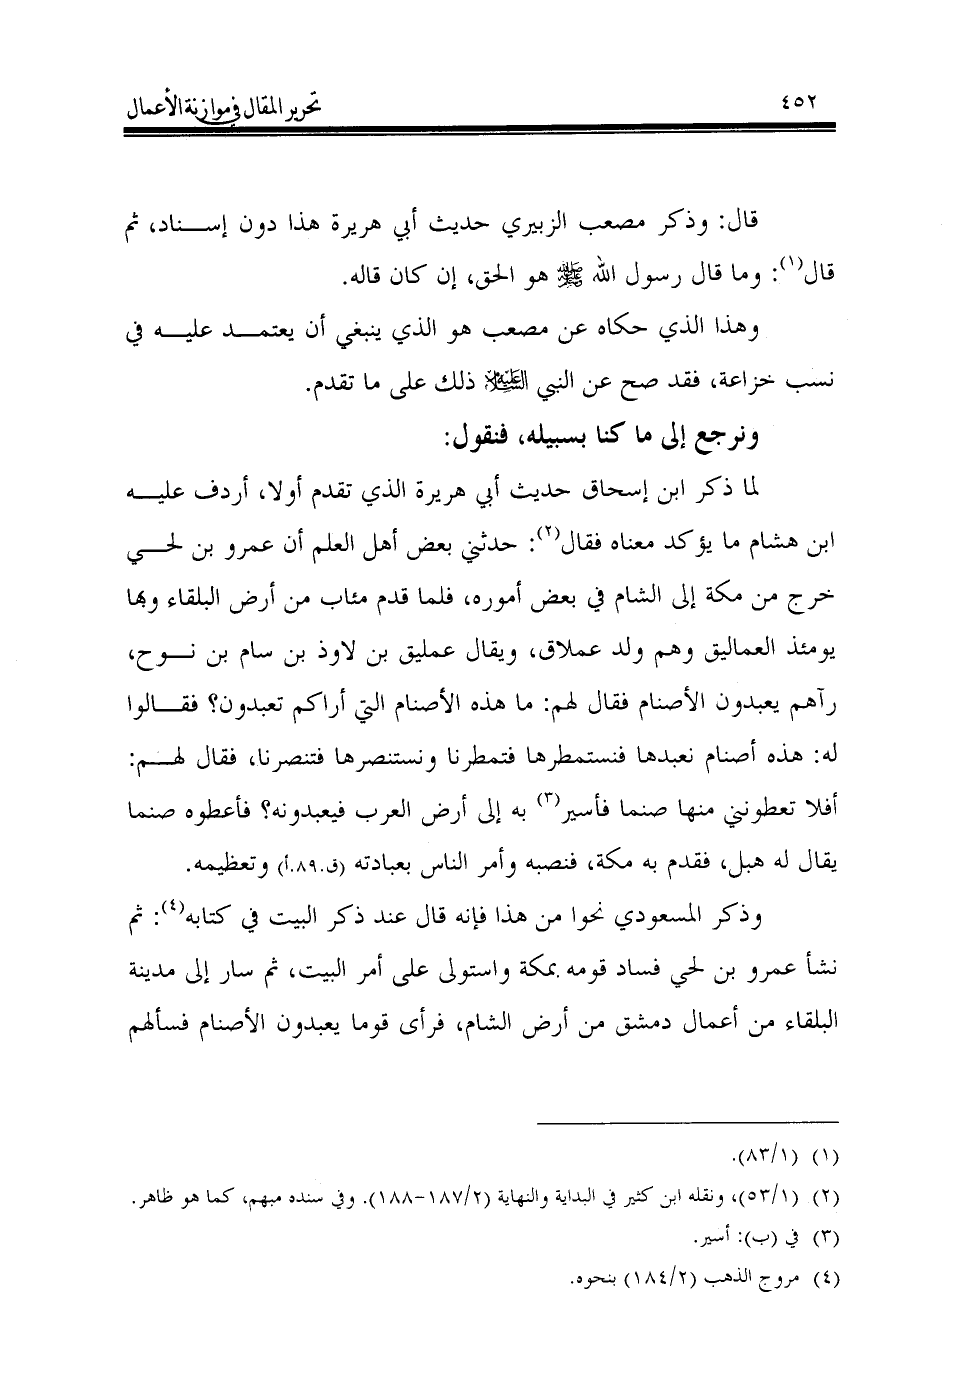 ٤٥٢ تحرير المقال في موازنة الأعمال
قال: وذكر مصعب الزبيري حديث أبي هريرة هذا دون إســـناد، ثم
قال(١): وما قال رسول الله ﷺ هو الحق، إن كان قاله.
وهذا الذي حكاه عن مصعب هو الذي ينبغي أن يعتمــد عليــه في
نسب خزاعة، فقد صح عن النبي العَلَيْهِ السَّلَام ذلك على ما تقدم.
ونرجع إلى ما كنا بسبيله، فنقول:
لما ذكر ابن إسحاق حديث أبي هريرة الذي تقدم أولا، أردف عليــه
ابن هشام ما يؤكد معناه فقال(٢): حدثني بعض أهل العلم أن عمرو بن لحـــي
خرج من مكة إلى الشام في بعض أموره، فلما قدم مئاب من أرض البلقاء وبها
يومئذ العماليق وهم ولد عملاق، ويقال عمليق بن لاوذ بن سام بن نـــوح،
رآهم يعبدون الأصنام فقال لهم: ما هذه الأصنام التي أراكم تعبدون؟ فقـــالوا
له: هذه أصنام نعبدها فنستمطرها فتمطرنا ونستنصرها فتنصرنا، فقال لهـــم:
أفلا تعطونني منها صنما فأسير(٣) به إلى أرض العرب فيعبدونه؟ فأعطوه صنما
يقال له هبل، فقدم به مكة، فنصبه وأمر الناس بعبادته (ق.٨٩.أ) وتعظيمه.
وذكر المسعودي نحوا من هذا فإنه قال عند ذكر البيت في كتابه(٤): ثم
نشأ عمرو بن لحي فساد قومه بمكة واستولى على أمر البيت، ثم سار إلى مدينة
البلقاء من أعمال دمشق من أرض الشام، فرأى قوما يعبدون الأصنام فسألهم
(١) (٨٣/١).
(٢) (٥٣/١)، ونقله ابن كثير في البداية والنهاية (١٨٧/٢-١٨٨). وفي سنده مبهم، كما هو ظاهر.
(٣) في (ب): أسير.
(٤) مروج الذهب (١٨٤/٢) بنحوه.